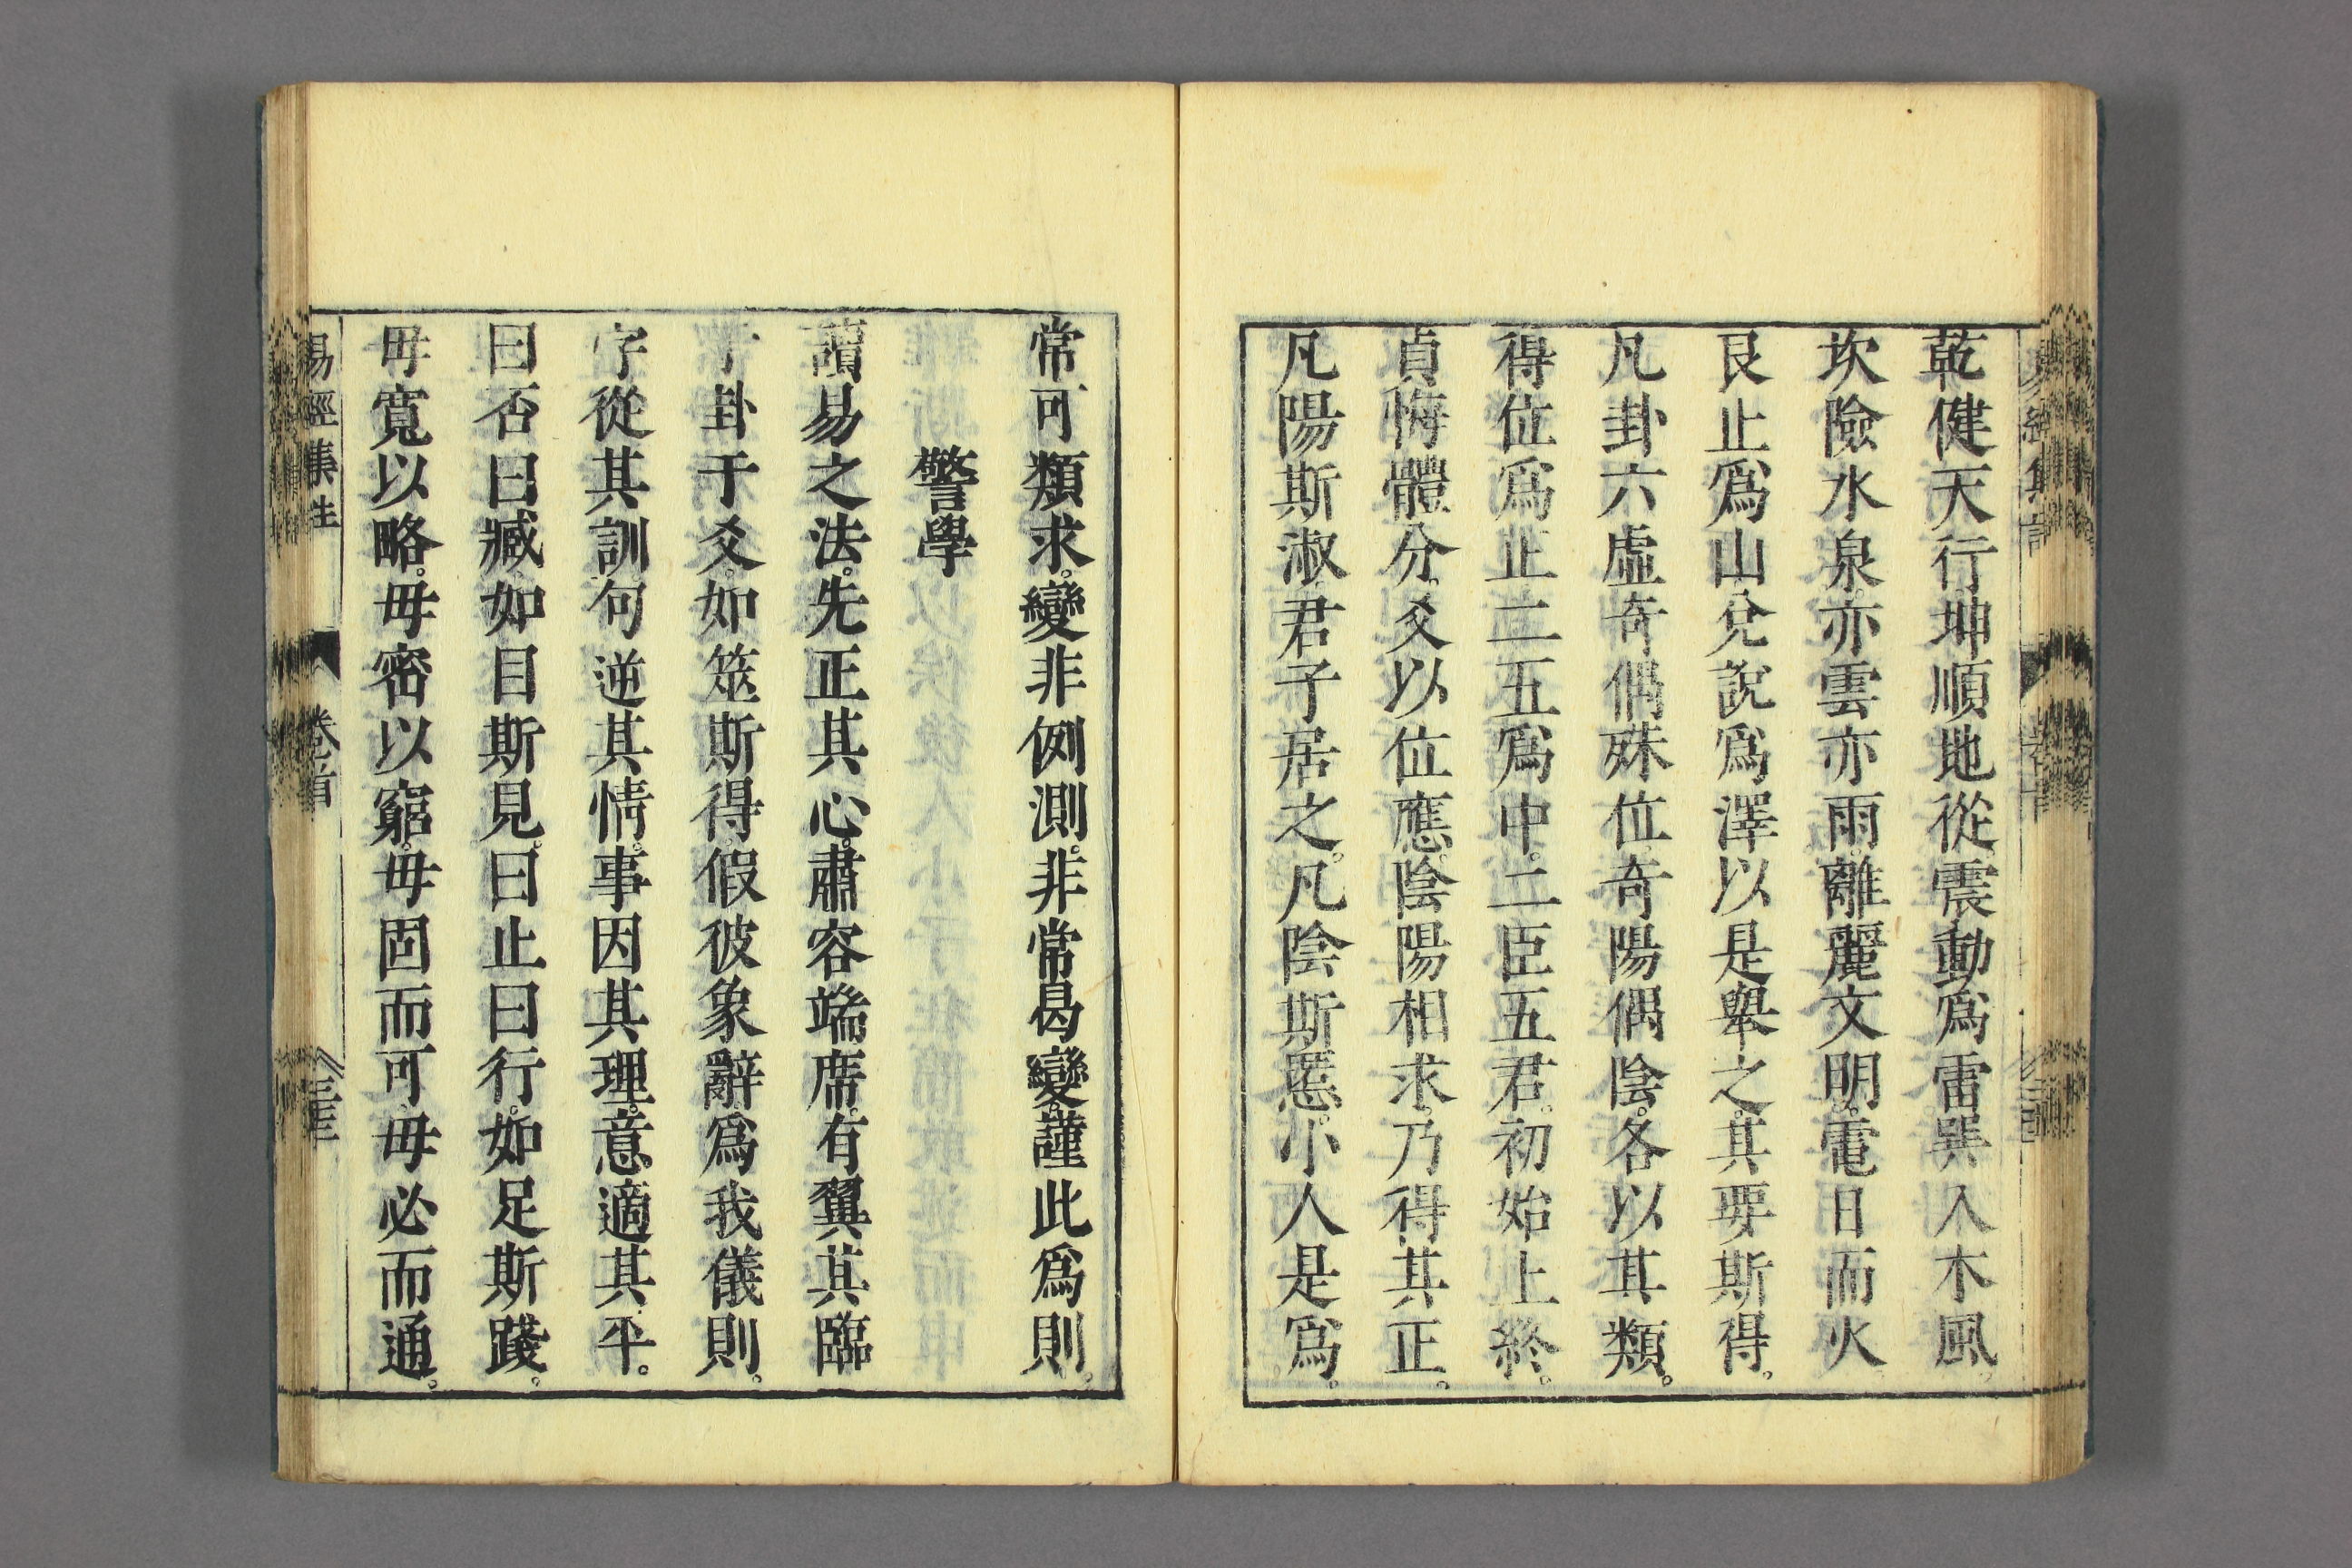 乾健天行。坤順地從。震動爲雷。巽入木風。
坎險水泉。亦雲亦雨。離麗文明。電日而火。
艮止爲山。兌說爲澤。以是舉之。其要斯得。
凡卦六虛。奇偶殊位。奇陽偶陰。各以其類。
得位爲正。二五爲中。二臣五君。初始上終。
貞悔體分。爻以位應。陰陽相求。乃得其正。
凡陽斯淑。君子居之。凡陰斯慝。小人是爲。
常可類求。變非例測。非常曷變。謹此爲則。
警學
讀易之法。先正其心。肅容端席。有翼其臨。
于卦于爻。如筮斯得。假彼象辭。爲我儀則。
字從其訓。句逆其情。事因其理。意適其平。
曰否曰臧。如目斯見。曰止曰行。如足斯踐。
毋寬以略。毋密以窮。毋固而可。毋必而通。
易經集註 卷首